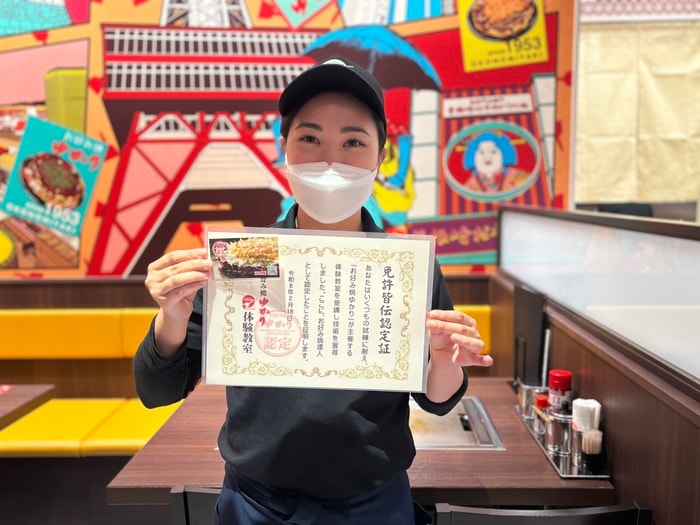 免許皆伝認定証
あなたはいくつもの試練に耐え、
「お好み焼ゆかり」が主催する
体験教室を受講し技術を習得
しました。ここに、お好み焼達人
として認定したことを証明します。
令和6年2月18日
ゆかり
体験教室
認定
お好み焼
ゆかり
since1953
OKONOMIYAKI
since1953
OKONOMIYAKI